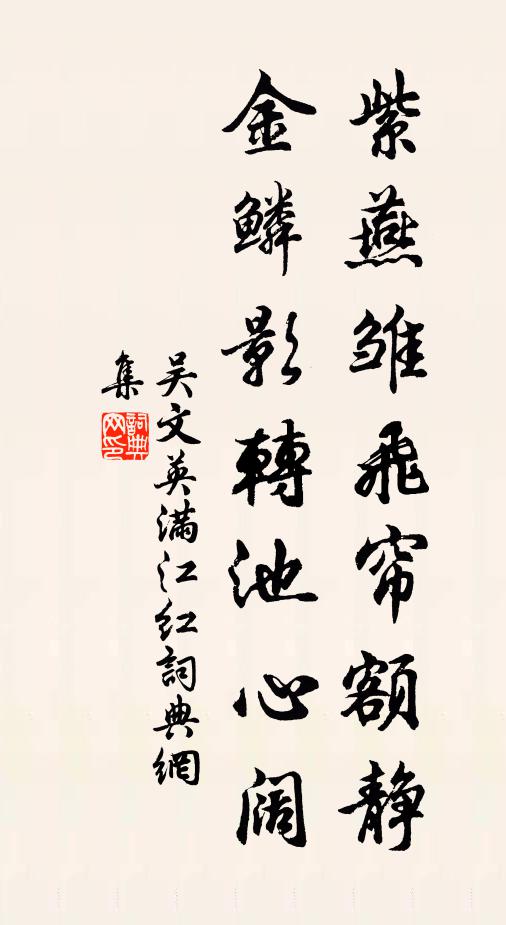 紫燕雏飛帘額静
金鳞影轉池心阔
吴文英满江红詞典網
集
詞典
网印